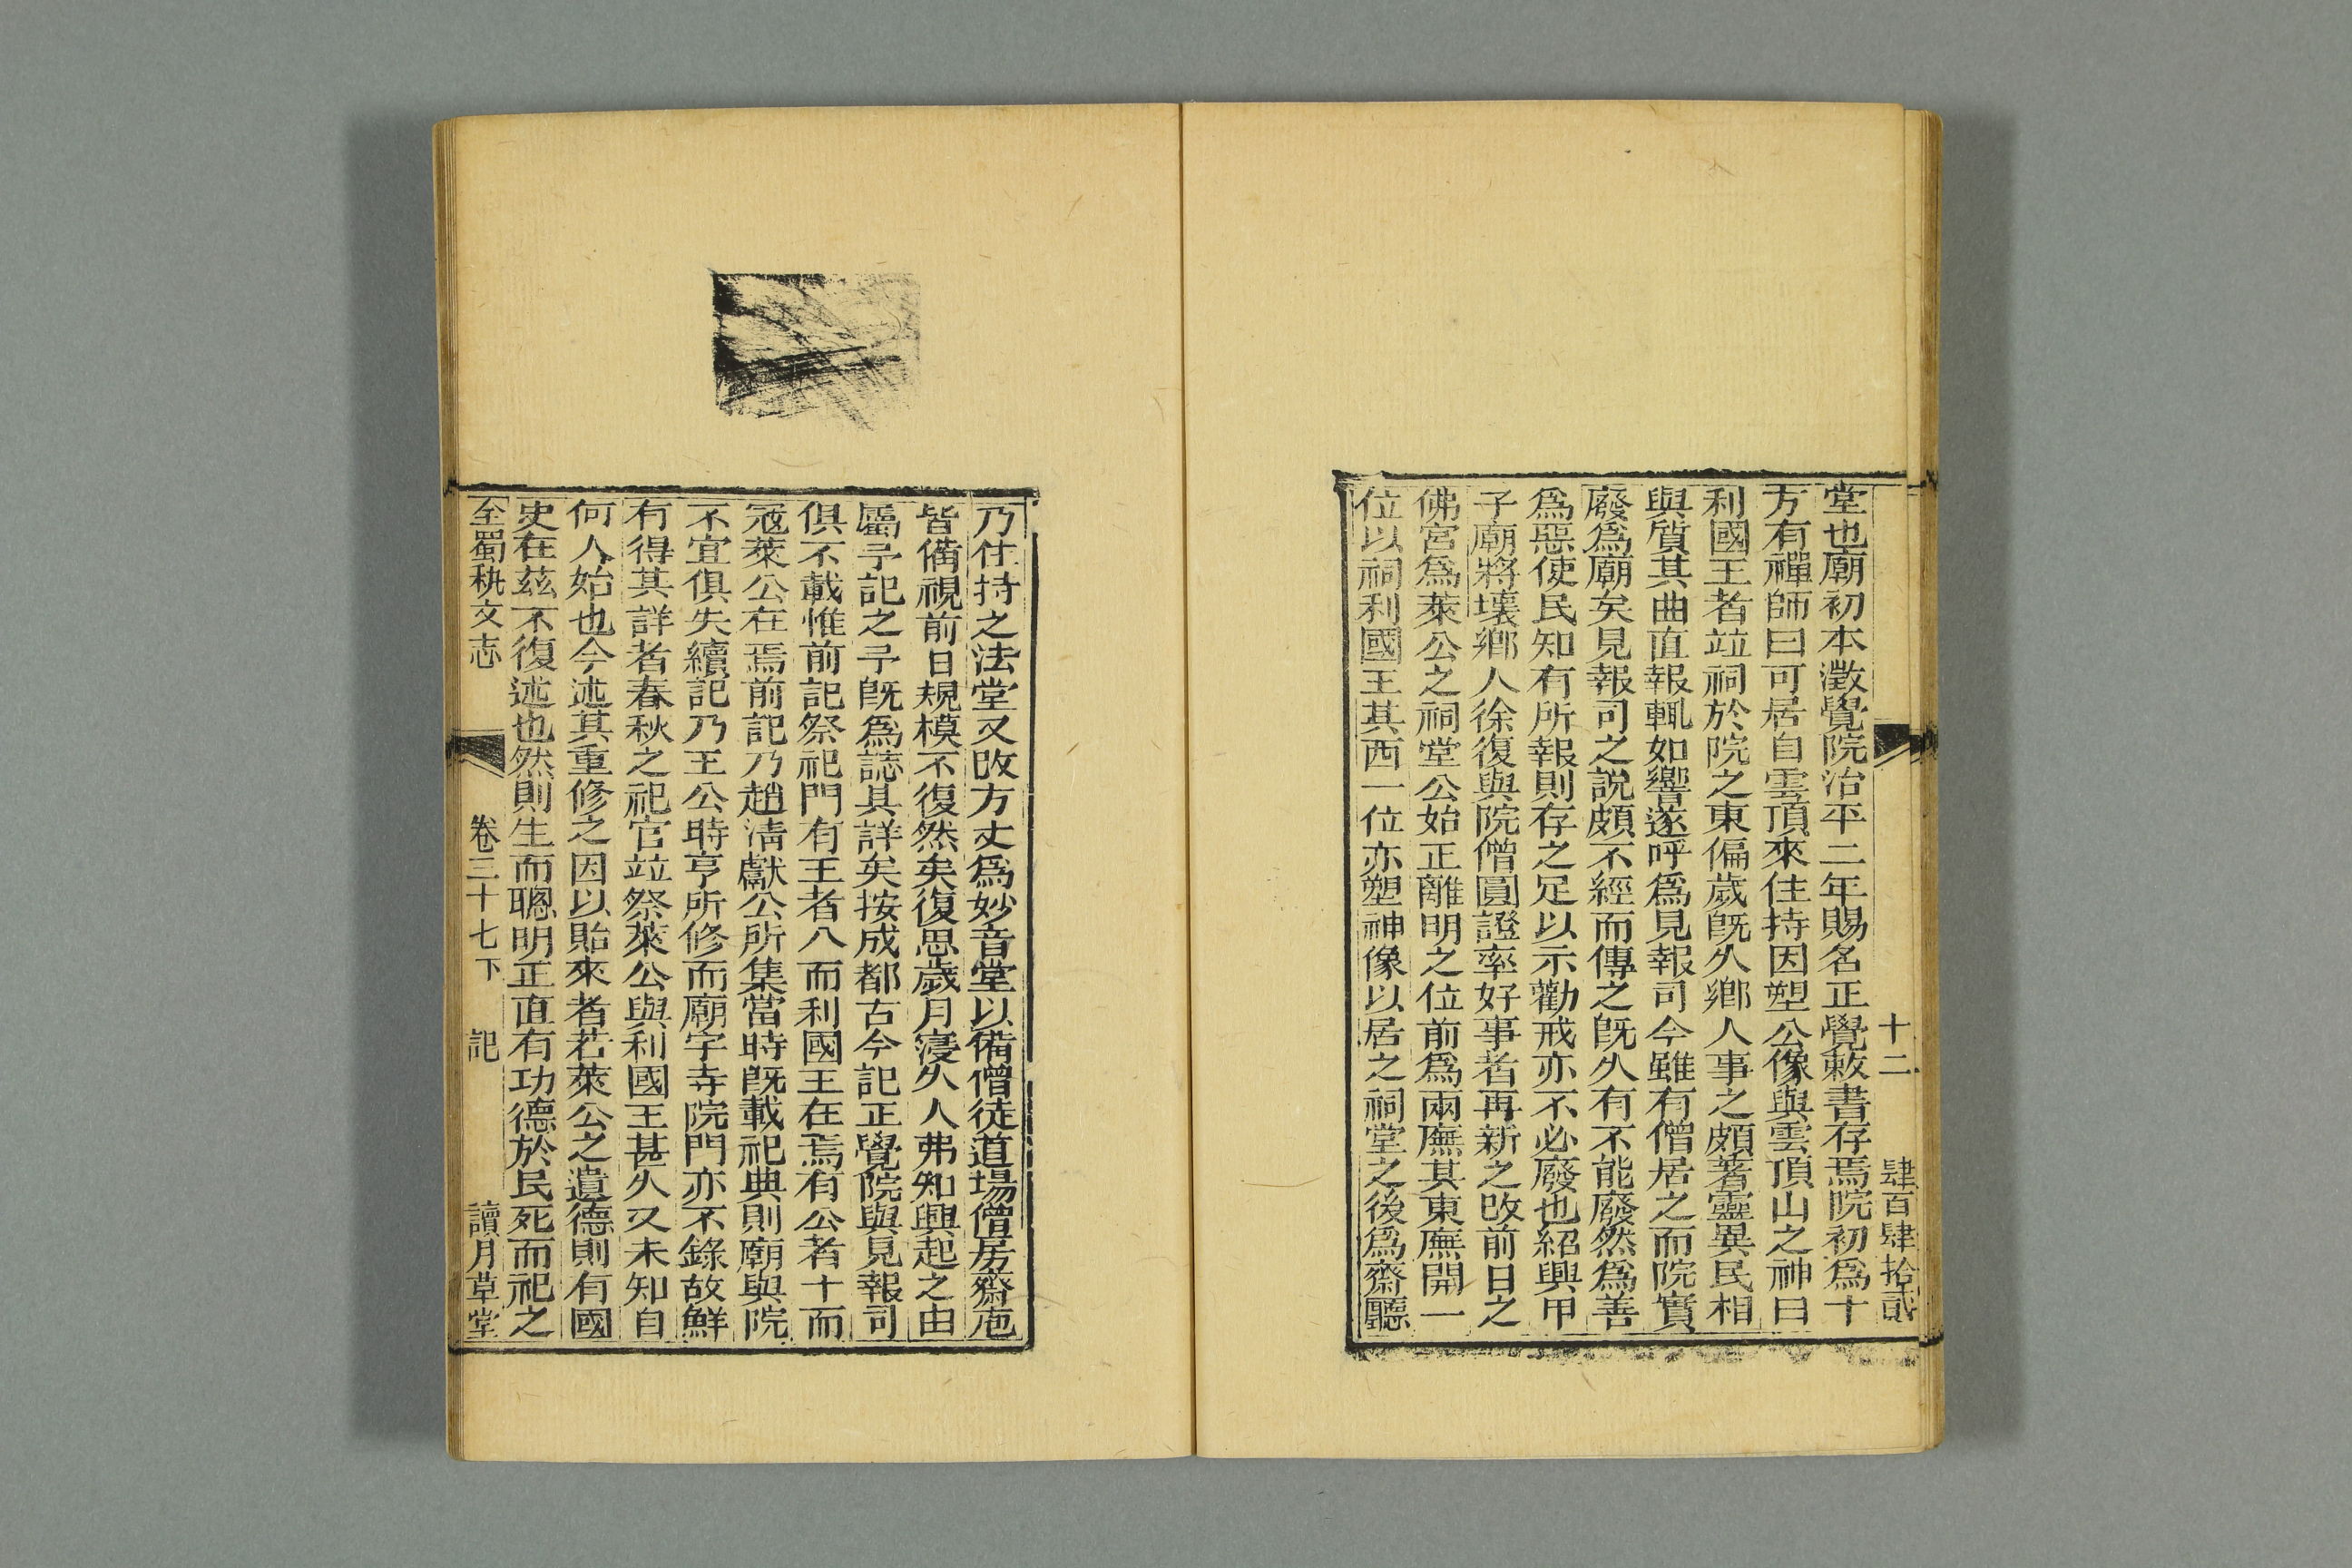 十二　肆百肆拾貳
堂也廟初本澂覺院治平二年賜名正覺敕書存焉院初爲十
方有禪師曰可居自雲頂來住持因塑公像與雲頂山之神曰
利國王者竝祠於院之東偏歲旣久鄉人事之頗著靈異民相
與質其曲直報輒如響遂呼爲見報司今雖有僧居之而院實
廢爲廟矣見報司之説頗不經而傳之旣久有不能廢然爲善
爲惡使民知有所報則存之足以示勸戒亦不必廢也紹興甲
子廟將壞鄉人徐復與院僧圓證率好事者再新之改前日之
佛宮爲萊公之祠堂公始正離明之位前爲兩廡其東廡開一
位以祠利國王其西一位亦塑神像以居之祠堂之後爲齋廳
乃住持之法堂又改方丈爲妙音堂以備僧徒道場僧房齋庖
皆備視前日規模不復然矣復思歲月寖久人弗知興起之由
屬予記之予旣爲誌其詳矣按成都古今記正覺院與見報司
俱不載惟前記祭祀門有王者八而利國王在焉有公者十而
寇萊公在焉前記乃趙淸獻公所集當時旣載祀典則廟與院
不宜俱失續記乃王公時亨所修而廟宇寺院門亦不錄故鮮
有得其詳者春秋之祀官竝祭萊公與利國王甚久又未知自
何人始也今述其重修之因以貽來者若萊公之遺德則有國
史在茲不復述也然則生而聰明正直有功德於民死而祀之
全蜀秇文志　卷三十七下　記　讀月草堂